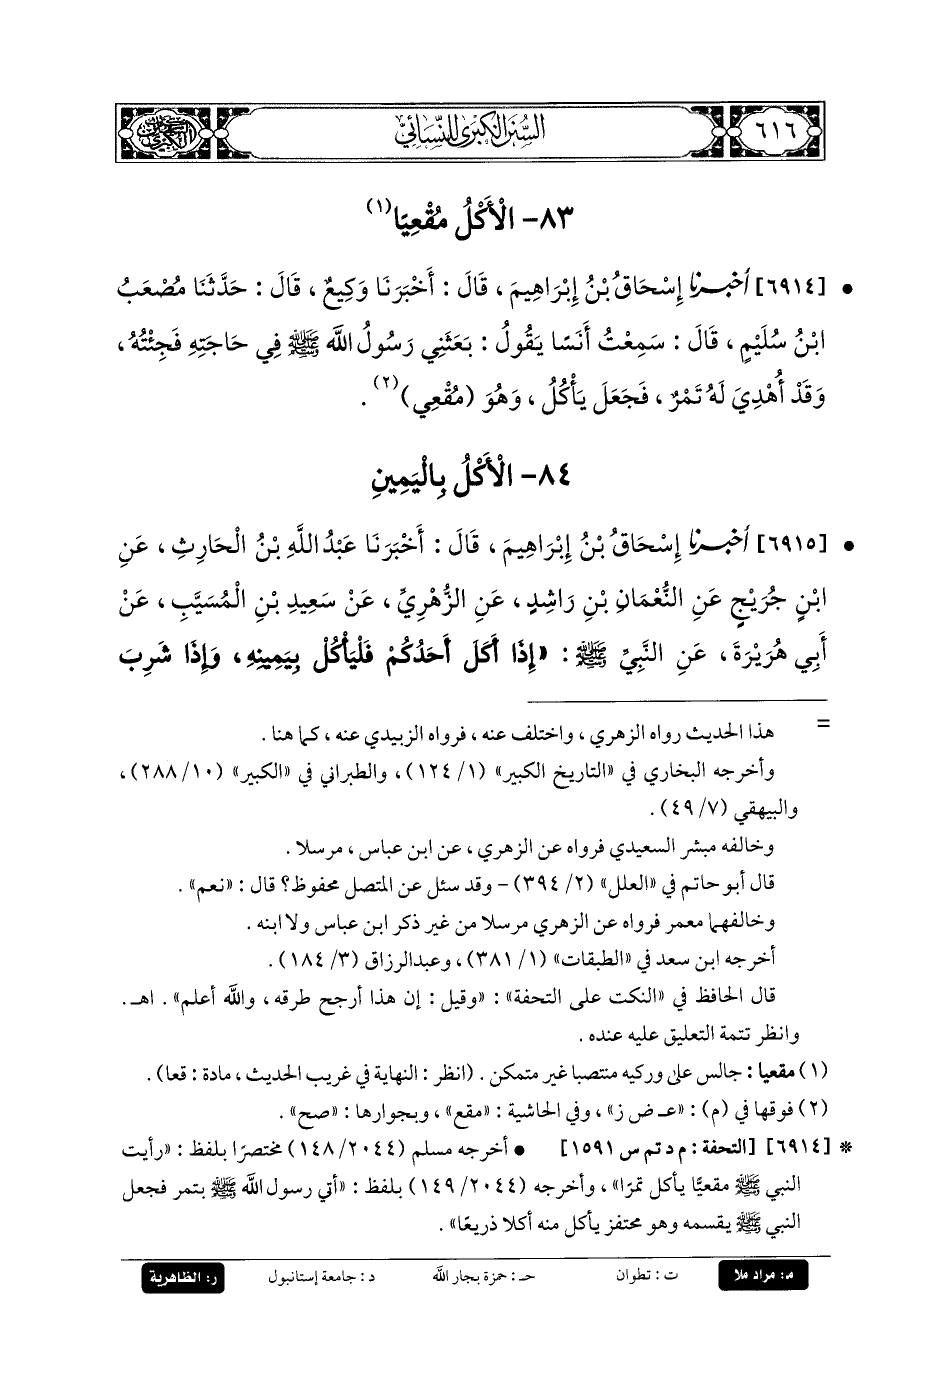 ٦١٦
السُّنَنُ الكُبْرَى لِلنَّسَائِيِّ
٨٣- الْأَكْلُ مُقْعِيًا(١)
• [٦٩١٤] أَخْبَرَنَا إِسْحَاقُ بْنُ إِبْرَاهِيمَ، قَالَ: أَخْبَرَنَا وَكِيعٌ، قَالَ: حَدَّثَنَا مُصْعَبُ
ابْنُ سُلَيْمٍ، قَالَ: سَمِعْتُ أَنَسًا يَقُولُ: بَعَثَنِي رَسُولُ اللَّه ﷺ فِي حَاجَتِهِ فَجِئْتُهُ،
وَقَدْ أُهْدِيَ لَهُ تَمْرٌ، فَجَعَلَ يَأْكُلُ، وَهُوَ (مُقْعِي)(٢).
٨٤- الْأَكْلُ بِالْيَمِينِ
• [٦٩١٥] أَخْبَرَنَا إِسْحَاقُ بْنُ إِبْرَاهِيمَ، قَالَ: أَخْبَرَنَا عَبْدُ اللَّهِ بْنُ الْحَارِثِ، عَنِ
ابْنِ جُرَيْجٍ عَنِ النُّعْمَانِ بْنِ رَاشِدٍ، عَنِ الزُّهْرِيِّ، عَنْ سَعِيدِ بْنِ الْمُسَيَّبِ، عَنْ
أَبِي هُرَيْرَةَ، عَنِ النَّبِيِّ ﷺ: «إِذَا أَكَلَ أَحَدُكُمْ فَلْيَأْكُلْ بِيَمِينِهِ، وَإِذَا شَرِبَ
= هذا الحديث رواه الزهري، واختلف عنه، فرواه الزبيدي عنه، كما هنا.
وأخرجه البخاري في «التاريخ الكبير» (١/ ١٢٤)، والطبراني في «الكبير» (١٠/ ٢٨٨)،
والبيهقي (٧/ ٤٩).
وخالفه مبشر السعيدي فرواه عن الزهري، عن ابن عباس، مرسلا.
قال أبو حاتم في «العلل» (٢/ ٣٩٤)- وقد سئل عن المتصل محفوظ؟ قال: «نعم».
وخالفهما معمر فرواه عن الزهري مرسلا من غير ذكر ابن عباس ولا ابنه.
أخرجه ابن سعد في «الطبقات» (١/ ٣٨١)، وعبدالرزاق (٣/ ١٨٤).
قال الحافظ في «النكت على التحفة»: «وقيل: إن هذا أرجح طرقه، والله أعلم». اهـ.
وانظر تتمة التعليق عليه عنده.
(١) مقعيا: جالس على وركيه منتصبا غير متمكن. (انظر: النهاية في غريب الحديث، مادة: قعا).
(٢) فوقها في (م): «عـ ض ز»، وفي الحاشية: «مقع»، وبجوارها: «صح».
* [٦٩١٤] [التحفة: م د تم س ١٥٩١] • أخرجه مسلم (٢٠٤٤/ ١٤٨) مختصرًا بلفظ: «رأيت
النبي ﷺ مقعيًا يأكل تمرًا»، وأخرجه (٢٠٤٤/ ١٤٩) بلفظ: «أتي رسول الله ﷺ بتمر فجعل
النبي ﷺ يقسمه وهو محتفز يأكل منه أكلا ذريعًا».
م: مراد ملا ت: تطوان حـ: حمزة بجار الله د: جامعة إستانبول ر: الظاهرية